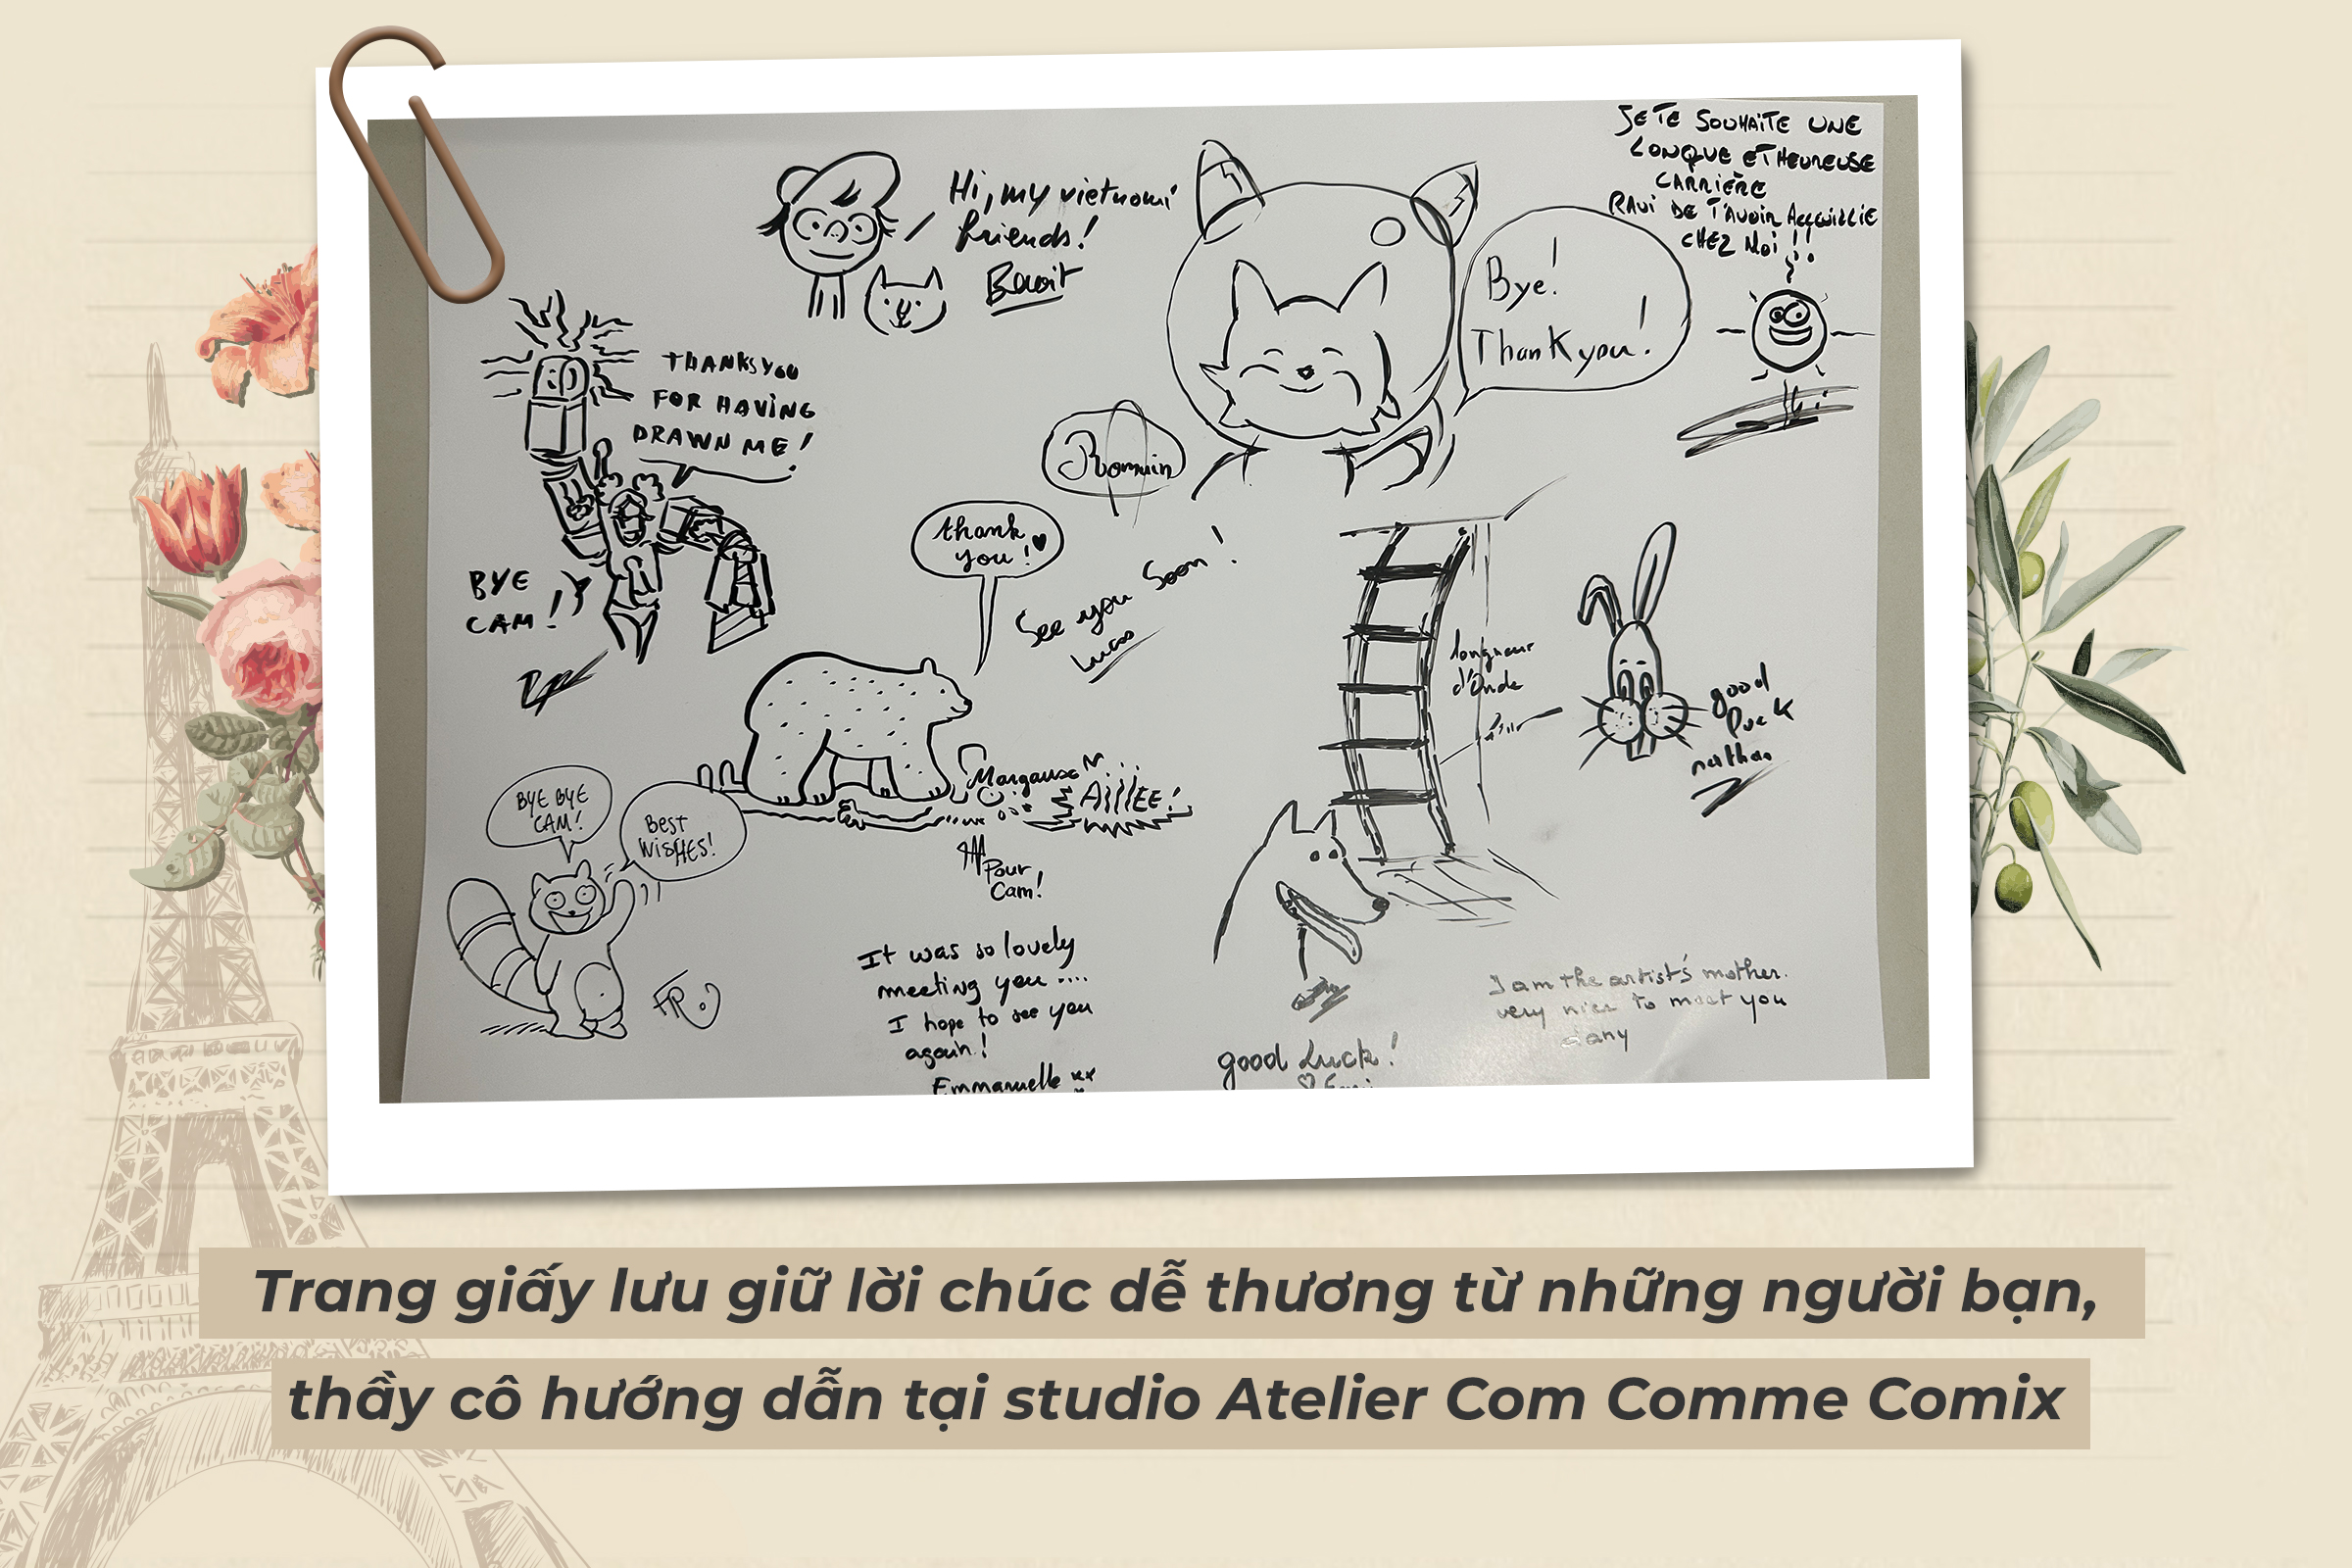 Hi, my vietnami
friends!
Benoit
JE TE SOUHAITE UNE
LONGUE ET HEUREUSE
CARRIÈRE
RAVI DE T'AVOIR ACCUEILLIE
CHEZ MOI !!
Bye!
Thank you!
THANKS YOU
FOR HAVING
DRAWN ME!
Romain
thank
you!
BYE
CAM!
See you Soon!
Lucas
longueur
d'Onde
good
luck
nathan
Margause
AÏÏLEE!
Pour
Cam!
BYE BYE
CAM!
BEST
WISHES!
It was so lovely
meeting you ....
I hope to see you
again!
Emmanuelle xx
I am the artist's mother.
very nice to meet you
dany
good Luck!
Trang giấy lưu giữ lời chúc dễ thương từ những người bạn,
thầy cô hướng dẫn tại studio Atelier Com Comme Comix